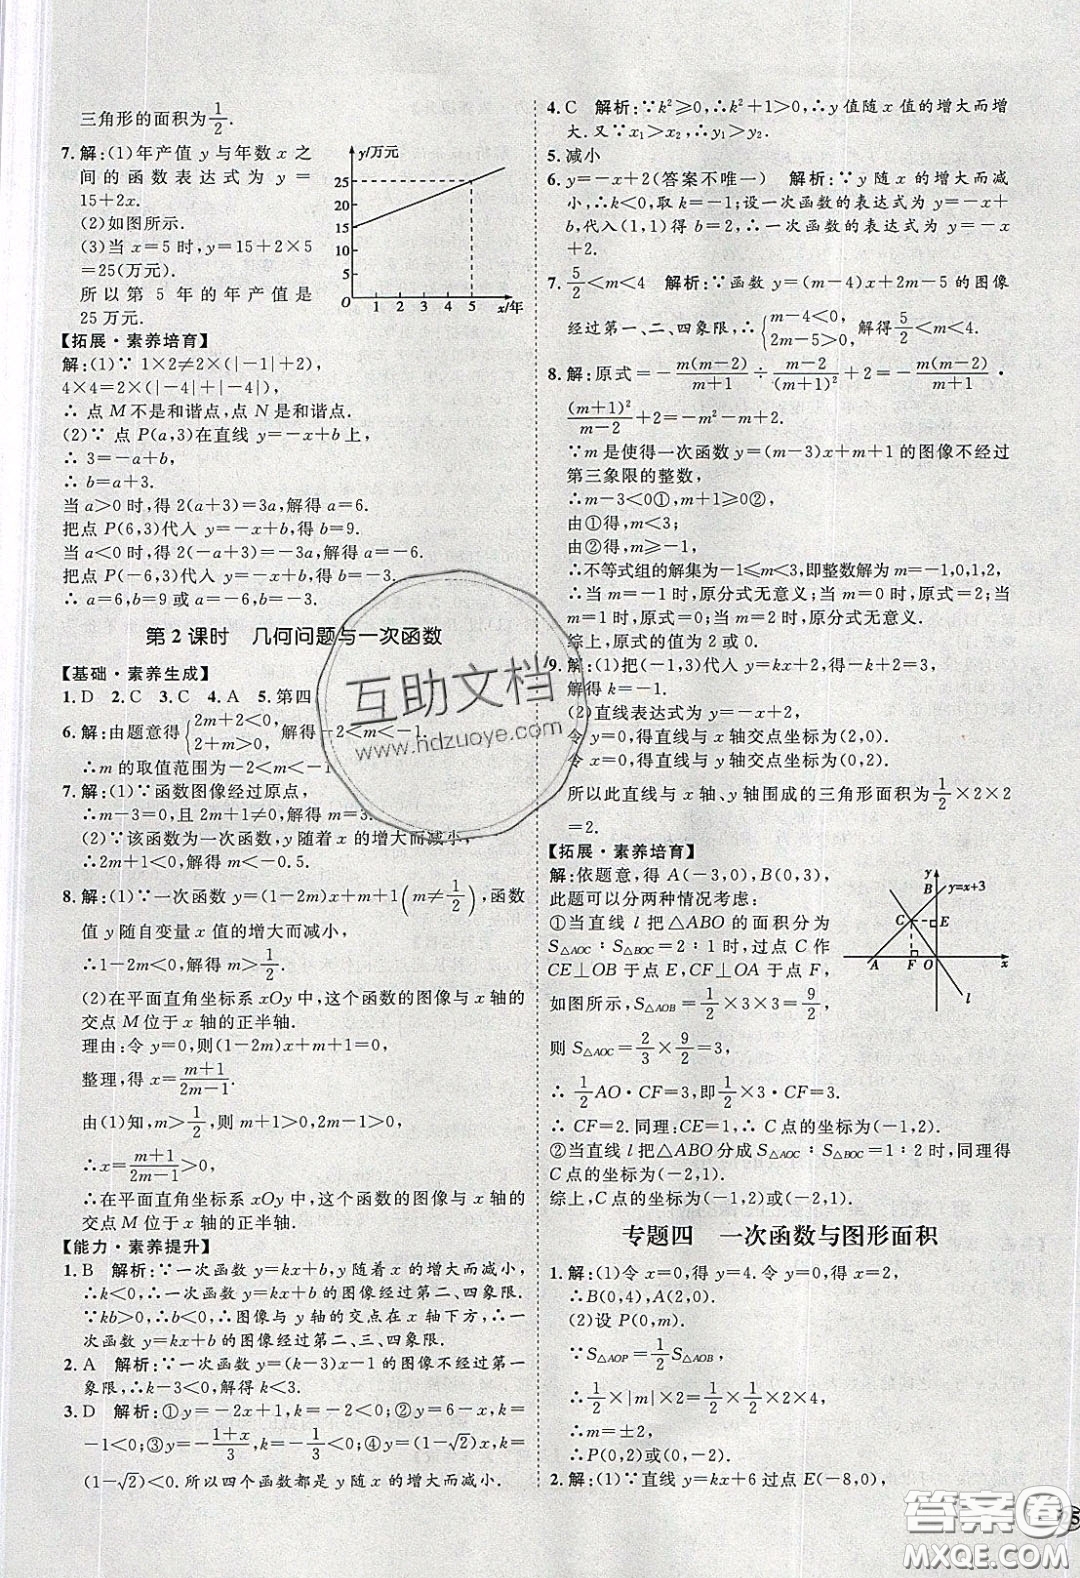 三角形的面积为1/2.
7.解:(1)年产值 y 与年数 x 之
间的函数表达式为 y =
15+2x.
(2)如图所示.
(3)当 x=5 时,y=15+2×5
=25(万元).
所以第 5 年的年产值是
25 万元.
y/万元
25
20
15
10
5
O 1 2 3 4 5 x/年
【拓展·素养培育】
解:(1)∵ 1×2≠2×(|-1|+|2|),
4×4=2×(|-4|+|-4|),
∴ 点 M 不是和谐点,点 N 是和谐点.
(2)∵ 点 P(a,3)在直线 y=-x+b 上,
∴ 3=-a+b,
∴ b=a+3.
当 a>0 时,得 2(a+3)=3a,解得 a=6.
把点 P(6,3)代入 y=-x+b,得 b=9.
当 a<0 时,得 2(-a+3)=-3a,解得 a=-6.
把点 P(-6,3)代入 y=-x+b,得 b=-3.
∴ a=6,b=9 或 a=-6,b=-3.
第 2 课时 几何问题与一次函数
【基础·素养生成】
1.D 2.C 3.C 4.A 5.第四
6.解:由题意得{2m+2<0, 2+m>0, 解得-2<m<-1
∴m 的取值范围为-2<m<-1
7.解:(1)∵函数图像经过原点,
∴m-3=0,且 2m+1≠0,解得 m=3.
(2)∵该函数为一次函数,y 随着 x 的增大而减小,
∴2m+1<0,解得 m<-0.5.
8.解:(1)∵一次函数 y=(1-2m)x+m+1(m≠1/2),函数
值 y 随自变量 x 值的增大而减小,
∴1-2m<0,解得 m>1/2.
(2)在平面直角坐标系 xOy 中,这个函数的图像与 x 轴的
交点 M 位于 x 轴的正半轴.
理由:令 y=0,则(1-2m)x+m+1=0,
整理,得 x=(m+1)/(2m-1).
由(1)知,m>1/2,则 m+1>0,2m-1>0,
∴x=(m+1)/(2m-1)>0,
∴在平面直角坐标系 xOy 中,这个函数的图像与 x 轴的
交点 M 位于 x 轴的正半轴.
【能力·素养提升】
1.B 解析:∵一次函数 y=kx+b,y 随着 x 的增大而减小,
∴k<0,∴一次函数 y=kx+b 的图像经过第二、四象限.
∵kb>0,∴b<0,∴图像与 y 轴的交点在 x 轴下方,∴一
次函数 y=kx+b 的图像经过第二、三、四象限.
2.A 解析:∵一次函数 y=(k-3)x-1 的图像不经过第一
象限,∴k-3<0,解得 k<3.
3.D 解析:①y=-2x+1,k=-2<0;②y=6-x,k=
-1<0;③y=-(1+x)/3,k=-1/3<0;④y=(1-√2)x,k=
(1-√2)<0.所以四个函数都是 y 随 x 的增大而减小.
4.C 解析:∵k²≥0,∴k²+1>0,∴y 值随 x 值的增大而增
大.又∵x₁>x₂,∴y₁>y₂.
5.减小
6.y=-x+2(答案不唯一) 解析:∵y 随 x 的增大而减
小,∴k<0,取 k=-1;设一次函数的表达式为 y=-x+
b,代入(1,1)得 b=2,∴一次函数的表达式为 y=-x+
2.
7.5/2<m<4 解析:∵函数 y=(m-4)x+2m-5 的图像
经过第一、二、四象限,∴{m-4<0, 2m-5>0, 解得5/2<m<4.
8.解:原式=-m(m-2)/(m+1)÷(m-2)/(m+1)²+2=-m(m-2)/(m+1)·
(m+1)²/(m-2)+2=-m²-m+2.
∵m 是使得一次函数 y=(m-3)x+m+1 的图像不经过
第三象限的整数,
∴m-3<0①,m+1≥0②,
由①得,m<3;
由②得,m≥-1,
∴不等式组的解集为-1≤m<3,即整数解为 m=-1,0,1,2,
∴当 m=-1 时,原分式无意义,当 m=2 时,原分式无意义.
综上,原式的值为 2 或 0.
9.解:(1)把(-1,3)代入 y=kx+2,得-k+2=3,
解得 k=-1.
(2)直线表达式为 y=-x+2,
令 y=0,得直线与 x 轴交点坐标为(2,0).
令 x=0,得直线与 y 轴交点坐标为(0,2).
所以此直线与 x 轴、y 轴围成的三角形面积为1/2×2×2
=2.
【拓展·素养培育】
解:依题意,得 A(-3,0),B(0,3),
此题可以分两种情况考虑:
①当直线 l 把△ABO 的面积分为
S△AOC∶S△BOC=2∶1 时,过点 C 作
CE⊥OB 于点 E,CF⊥OA 于点 F,
如图所示,S△AOB=1/2×3×3=9/2,
则 S△AOC=2/3×9/2=3,
∴1/2AO·CF=3,即1/2×3·CF=3,
∴ CF=2.同理:CE=1,∴ C点的坐标为(-1,2).
②当直线 l 把△ABO分成 S△AOC∶S△BOC=1∶2 时,同理得
C点的坐标为(-2,1).
综上,C 点的坐标为(-1,2)或(-2,1).
y
B y=x+3
C E
A F O x
l
专题四 一次函数与图形面积
1.解:(1)令 x=0,得 y=4.令 y=0,得 x=2,
∴B(0,4),A(2,0).
(2)设 P(0,m).
∵S△AOP=1/2S△AOB,
∴1/2×|m|×2=1/2×1/2×2×4,
∴m=±2,
∴P(0,2)或(0,-2).
2.解:(1)∵直线 y=kx+6 过点 E(-8,0),
互助文档
www.hdzuoye.com
答案圈
MXQE.COM